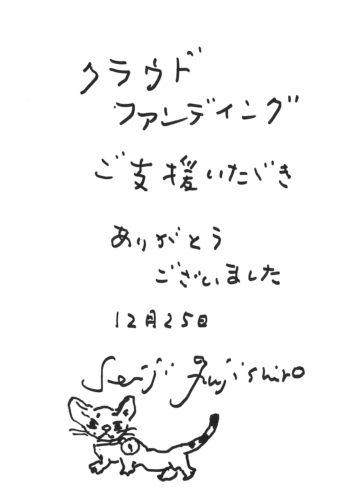 クラウド
ファンディング
ご支援いただき
ありがとう
ございました
12月25日
Seiji Fujishiro